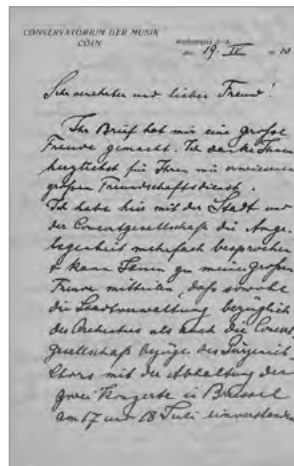 CONSERVATORIUM DER MUSIK
CÖLN
Wolfsstrasse 3-5
den 19. IV 1910
Sehr verehrter und lieber Freund!
Ihr Brief hat mir eine große
Freude gemacht. Ich danke Ihnen
herzlichst für Ihren mir erwiesenen
großen Freundschaftsdienst.
Ich habe hier mit der Stadt und
der Concertgesellschaft die Ange-
legenheit mehrfach besprochen
& kann Ihnen zu meiner großen
Freude mitteilen, daß sowohl
die Stadtverwaltung bezüglich
des Orchesters als auch die Concert
gesellschaft bezügl. des Gürzenich-
Chors mit der Abhaltung der
zwei Konzerte in Brüssel
am 17 und 18 Juli einverstanden